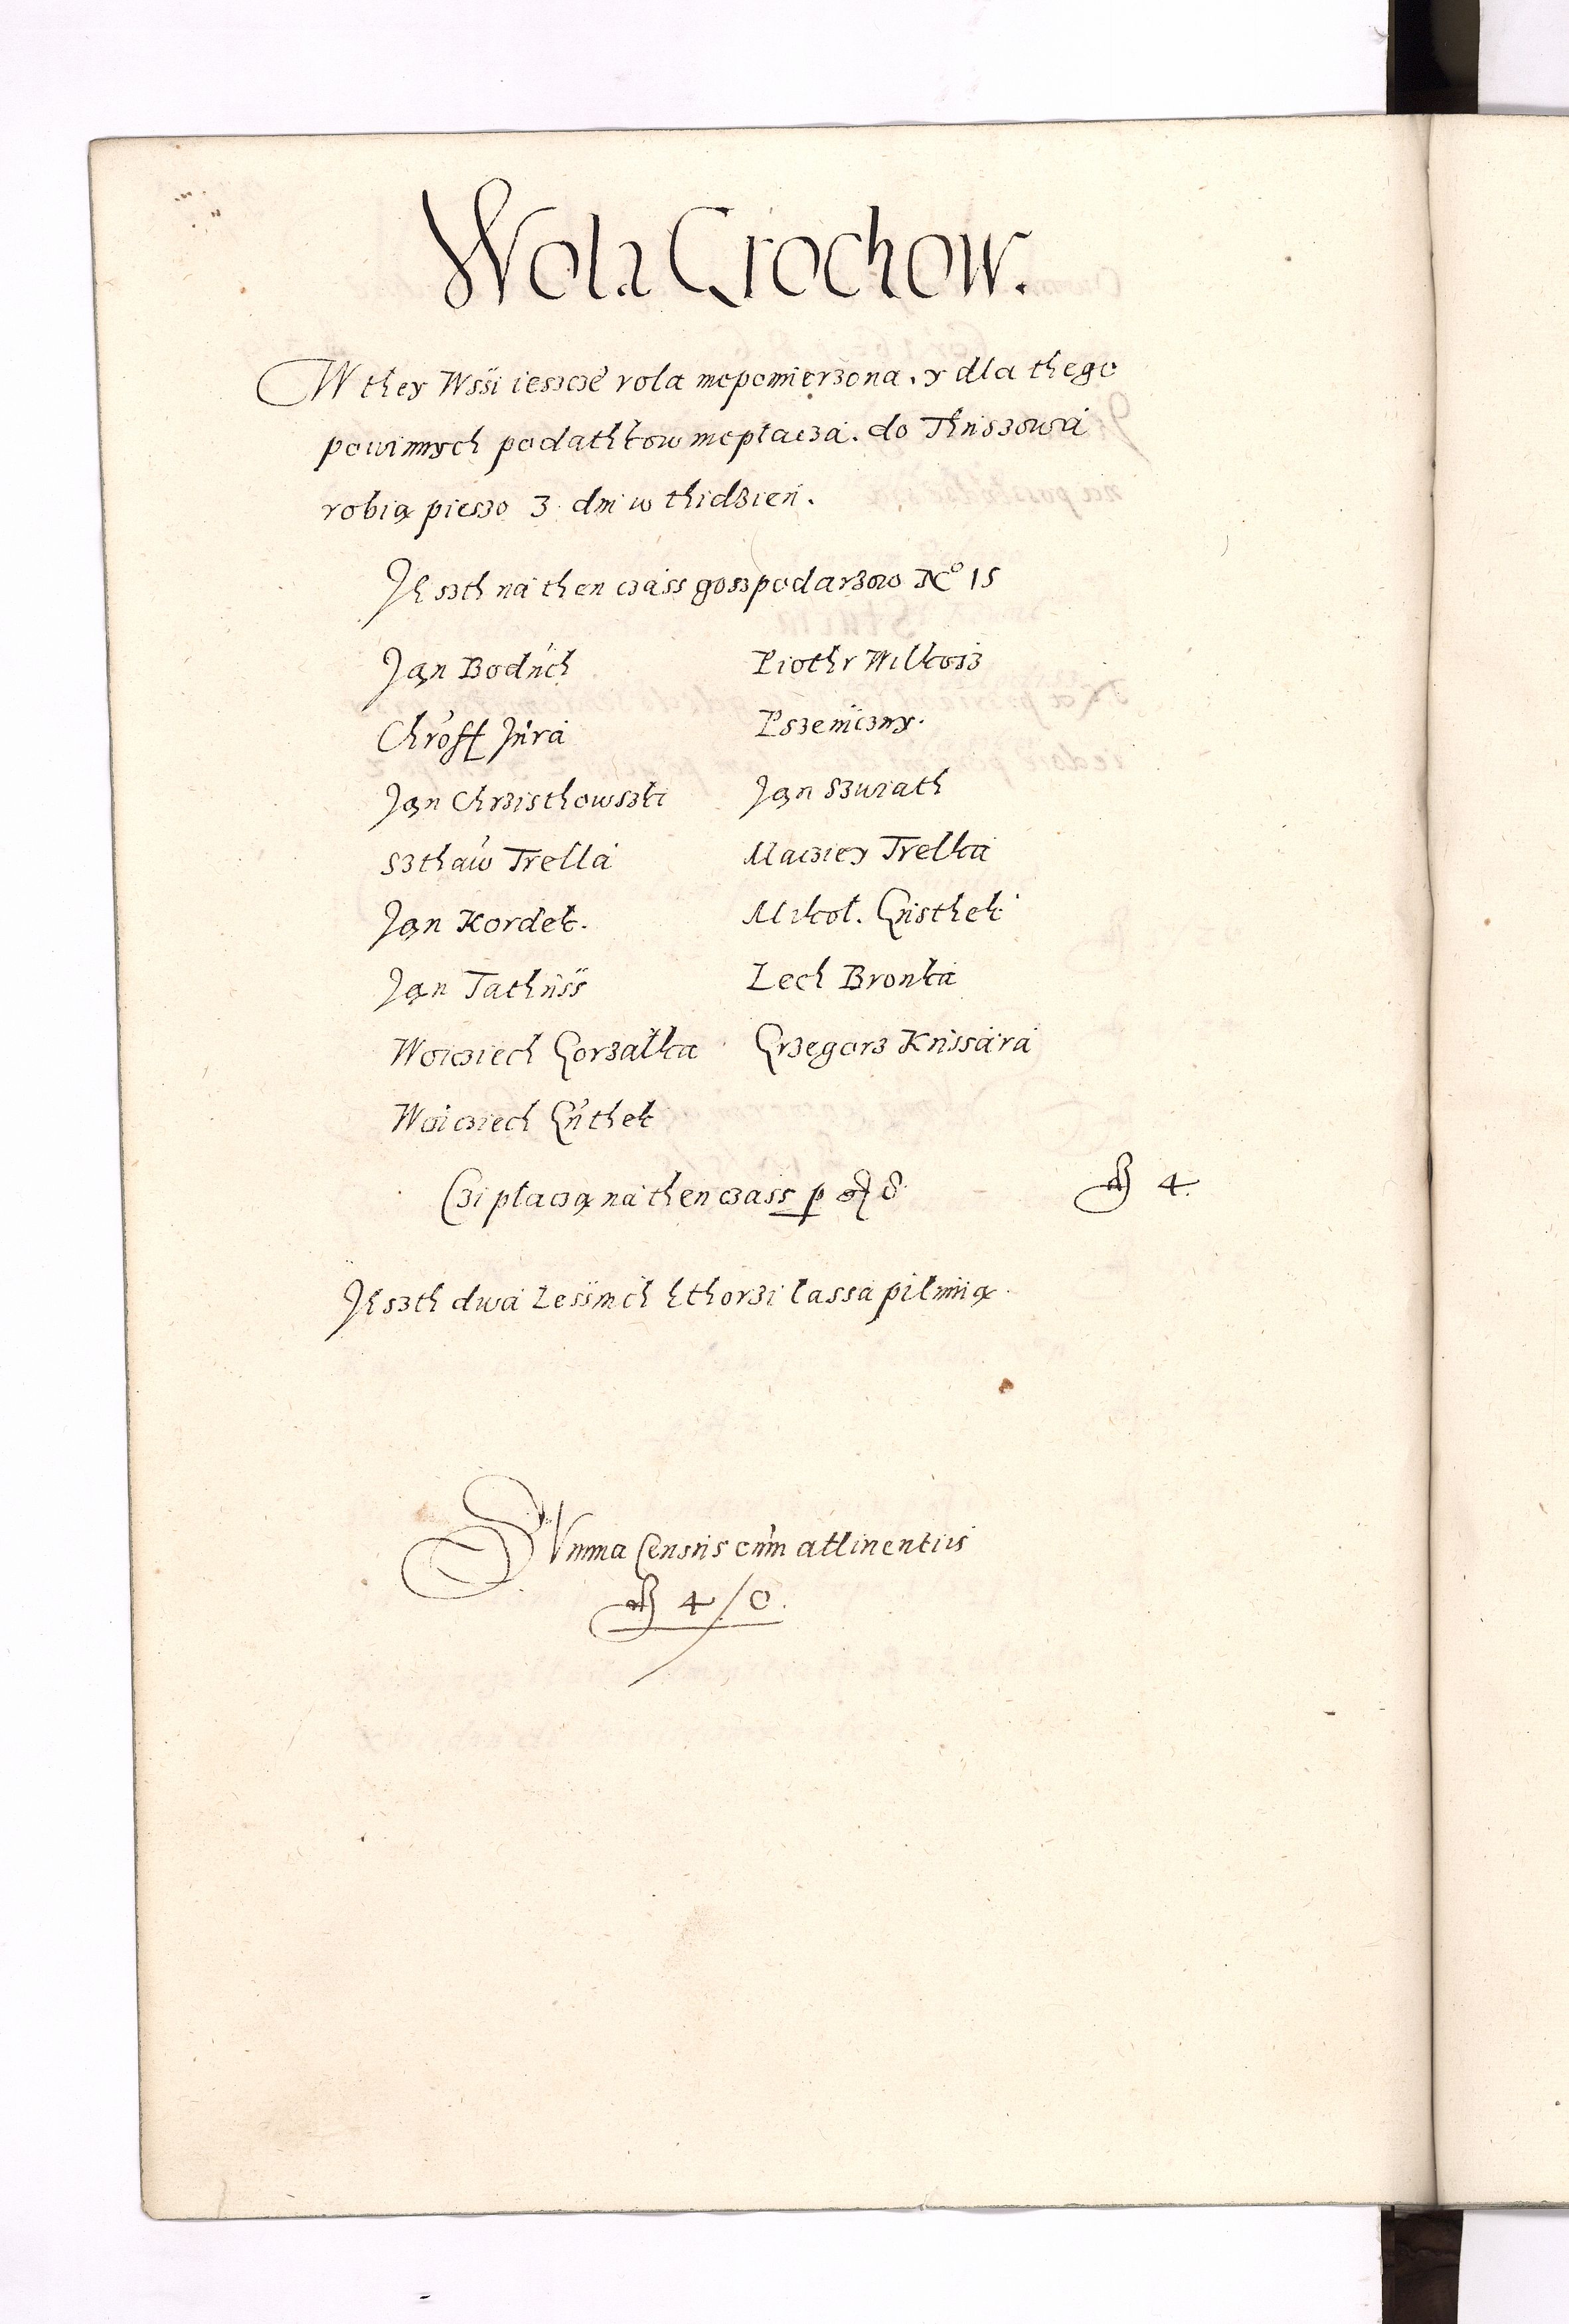 Wola Grochow.
W they Wssi ieszcze rola niepomierzona. y dla thego
powinnych podathkow nieplacza. do Thuszowa
robią pieszo 3 dni w thidzień.
Jeszth na then czass goszpodarzow No 15
Jan Boduch Piothr Wilkosz
Chroff Jura Pszeniczny.
Jan Chrzisthowszki Jan Szwiath
Szthaw Trella Maciey Trelka
Jan Kordek. Mikoł. Gusthek
Jan Tathuss Lech Bronka
Woiciech Gorzałka Grzegorz Kussara
Woiciech Guthek
Czi płaczą na then czass p 8 4.
Jeszth dwa Lessnich kthorzi lassa pilnuią.
SVmma Census cum attinentiis
4/0.